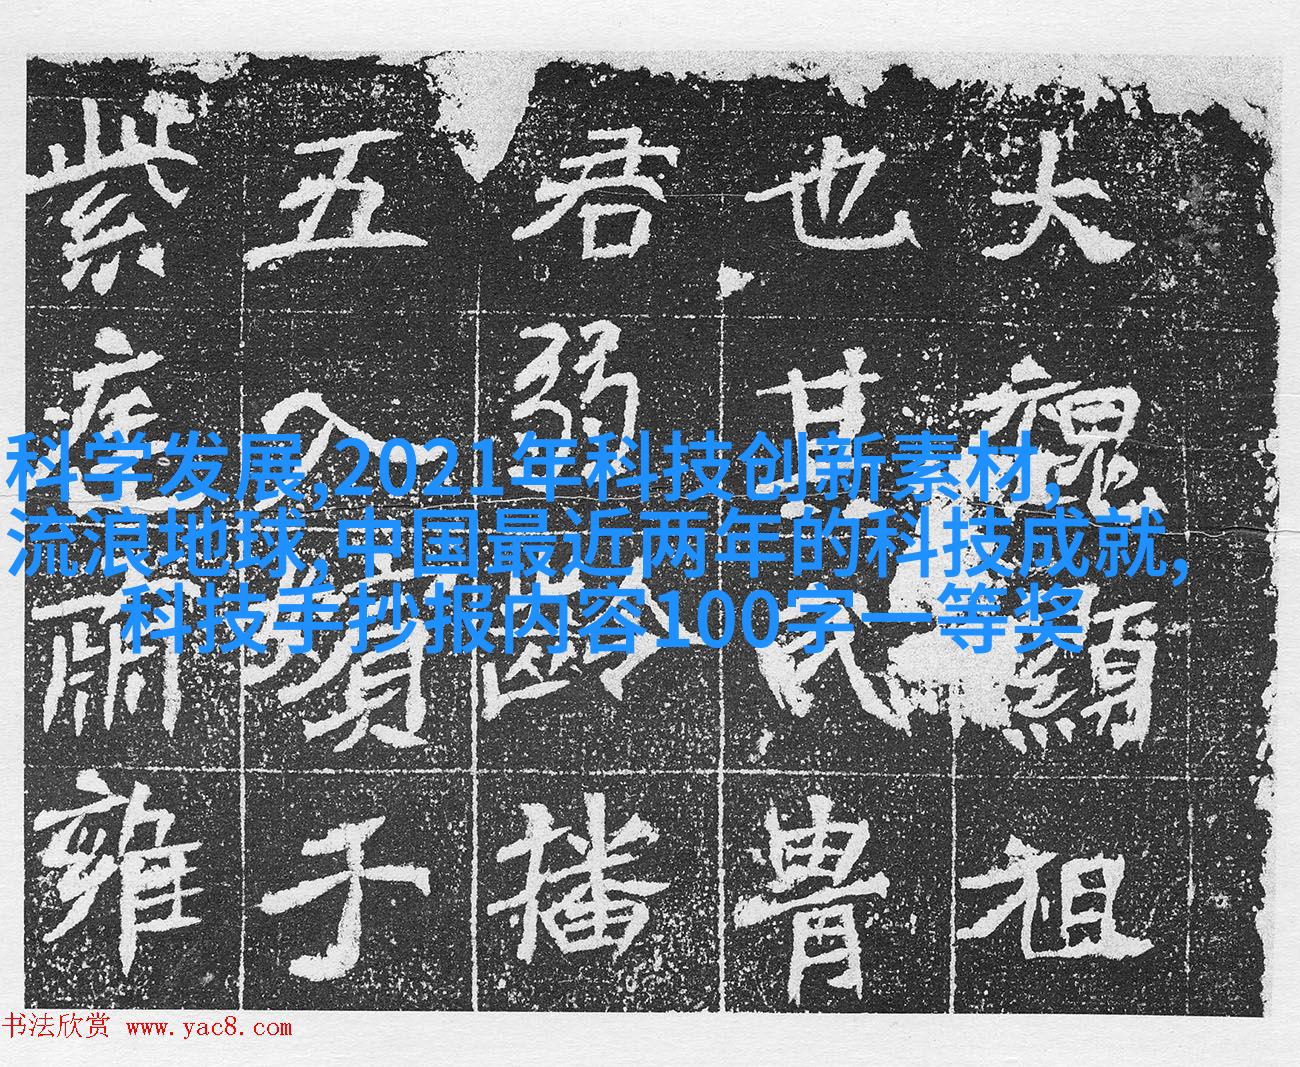 科学发展,2021年科技创新素材,
流浪地球,中国最近两年的科技成就,
科技手抄报内容100字一等奖
大顯祖
也其氏胄
君弱齡播
五入于
紫庭肅雍
书法欣赏 www.yac8.com